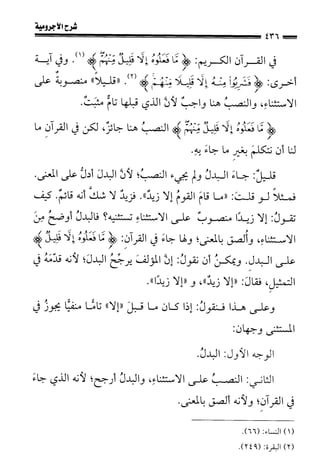 شرح الآجرومية
٤٣٦
في القرآن الكريم: ﴿ مَّا فَعَلُوهُ إِلَّا قَلِيلٌ مِّنْهُمْ ﴾ (١). وفي آية
أخرى: ﴿ فَشَرِبُوا مِنْهُ إِلَّا قَلِيلًا مِّنْهُمْ ﴾ (٢). «قليلًا» منصوبةٌ على
الاستثناءِ، والنصبُ هنا واجبٌ لأنَّ الذي قبلها تامٌّ مثبَتٌ.
﴿ مَّا فَعَلُوهُ إِلَّا قَلِيلٌ مِّنْهُمْ ﴾ النصبُ هنا جائزٌ، لكن في القرآنِ ما
لنا أن نتكلمَ بغيرِ ما جاءَ بِهِ.
قليلٌ: جاءَ البدلُ ولم يجيءِ النصبُ؛ لأنَّ البدلَ أدلُّ على المعنى.
فمثلًا لو قلتَ: «ما قامَ القومُ إلا زيدٌ». فزيدٌ لا شكَّ أنه قائمٌ. كيف
تقولُ: إلا زيدًا منصوبٌ على الاستثناءِ تستثنيه؟ فالبدلُ أوضحُ مِنَ
الاستثناءِ، وألصقُ بالمعنى؛ ولهذا جاءَ في القرآنِ: ﴿ مَّا فَعَلُوهُ إِلَّا قَلِيلٌ ﴾
على البدلِ. ويمكنُ أن نقولَ: إنَّ المؤلفَ يرجِّحُ البدلَ؛ لأنه قدَّمَهُ في
التمثيلِ، فقالَ: «إلا زيدٌ»، و «إلا زيدًا».
وعلى هذا فنقولُ: إذا كان ما قبلَ «إلا» تامًّا منفيًّا يجوزُ في
المستثنى وجهان:
الوجه الأولُ: البدلُ.
الثاني: النصبُ على الاستثناءِ، والبدلُ أرجحُ؛ لأنه الذي جاءَ
في القرآنِ؛ ولأنه ألصق بالمعنى.
(١) النساء: (٦٦).
(٢) البقرة: (٢٤٩).